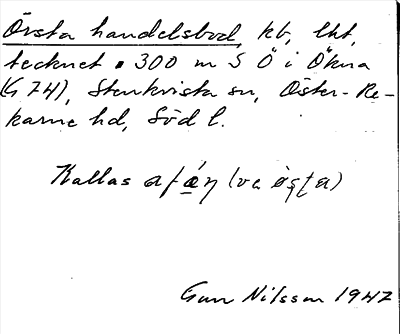 Örsta handelsbod, kb, lht,
tecknet ▪ 300 m S Ö i Ökna
(G 74), Stenkvista sn, Öster-Re-
karne hd, Söd l.
Kallas
Gun Nilsson 1947